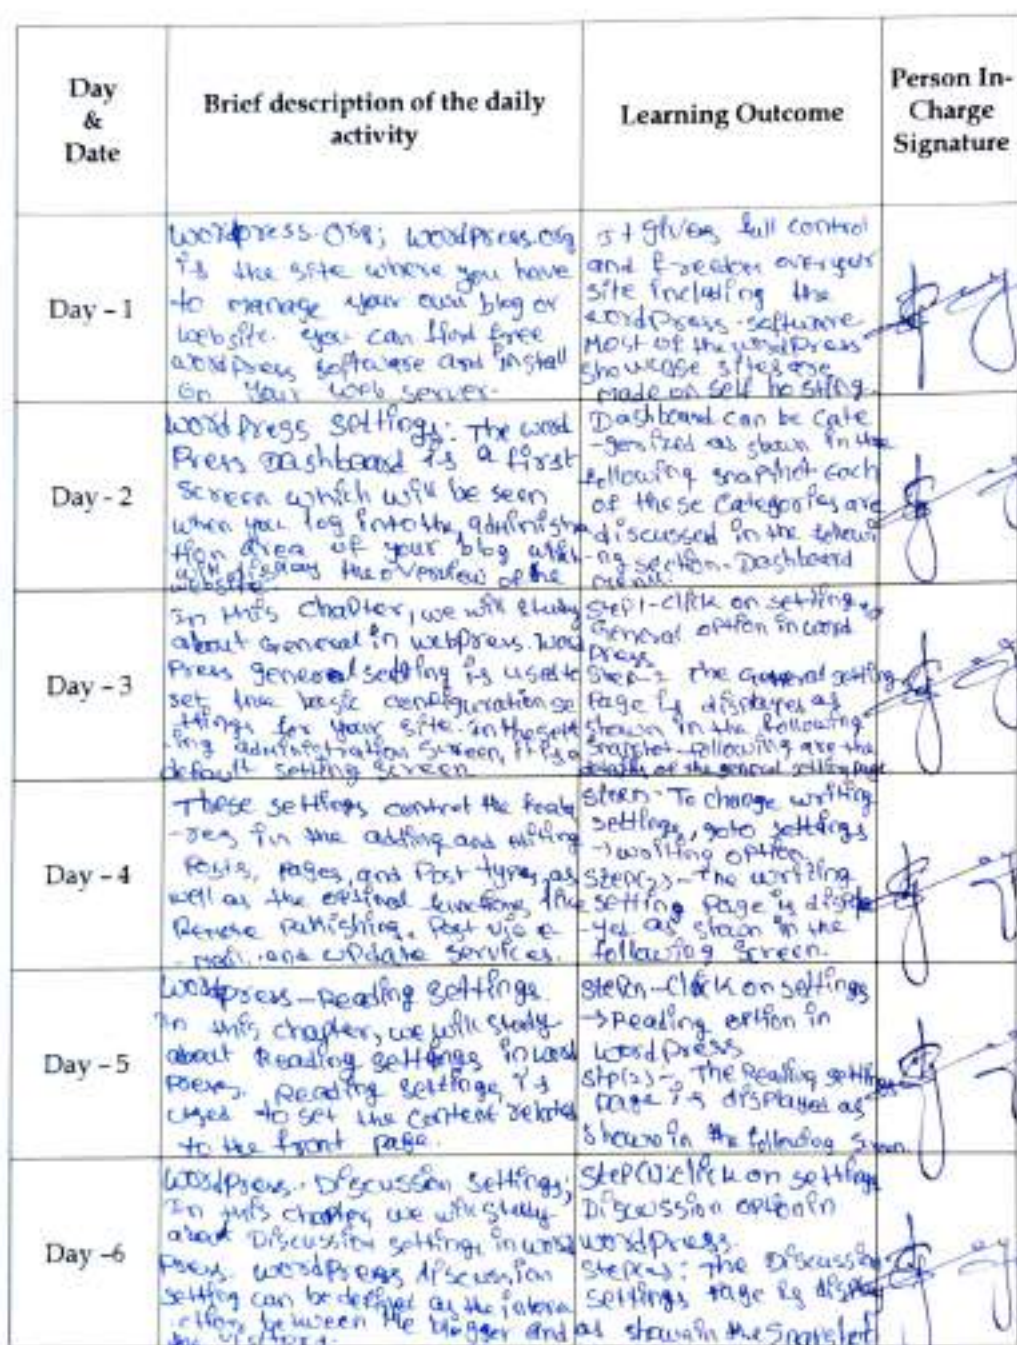 Day
&
Date
Brief description of the daily
activity
Learning Outcome
Person In-
Charge
Signature
Day – 1
wordpress.org; wordpress.org
is the site where you have
to manage your own blog or
website. you can find free
wordpress software and install
on your web server.
It gives full control
and freedom over your
site including the
wordpress software
Most of the wordpress
showcase sites are
made on self hosting.
Day - 2
wordpress settings: The word
Press Dashboard is a first
screen which will be seen
when you log into the administra
tion area of your blog which
will display the overview of the
website.
Dashboard can be cate
-gorized as shown in the
following snapshot each
of these categories are
discussed in the followi
-ng section - Dashboard
menu.
Day – 3
In this chapter, we will study
about General in webpress. Word
Press general setting is used to
set the basic configuration se
-ttings for your site. In the sett
-ing administration screen, it is a
default setting screen
Step1-click on setting →
General option in word
press
Step-2 The General setting
Page is displayed as
shown in the following
snapshot. Following are the
details of the general setting page
Day – 4
These settings control the featu
-res in the adding and editing
Posts, Pages, and Post types, as
well as the optional functions like
Remote Publishing, Post via e
-mail, and update services.
To change writing
settings, goto settings
→ writing option
Step(2)-The writing
setting Page is displa
-yed as shown in the
following screen.
Day – 5
wordpress – Reading settings.
In this chapter, we will study
about Reading settings in word
press. Reading settings is
used to set the content related
to the front page.
click on settings
→ Reading option in
wordpress
The Reading settings
page is displayed as
shown in the following screen.
Day –6
wordpress - Discussion settings;
In this chapter, we will study
about Discussion settings in word
press. wordpress discussion
setting can be defined as the intera
-ction between the blogger and
the visitors.
Step(1):click on settings
Discussion option in
wordpress.
Step(2): The Discussion
settings page is display
as shown in the snapshot